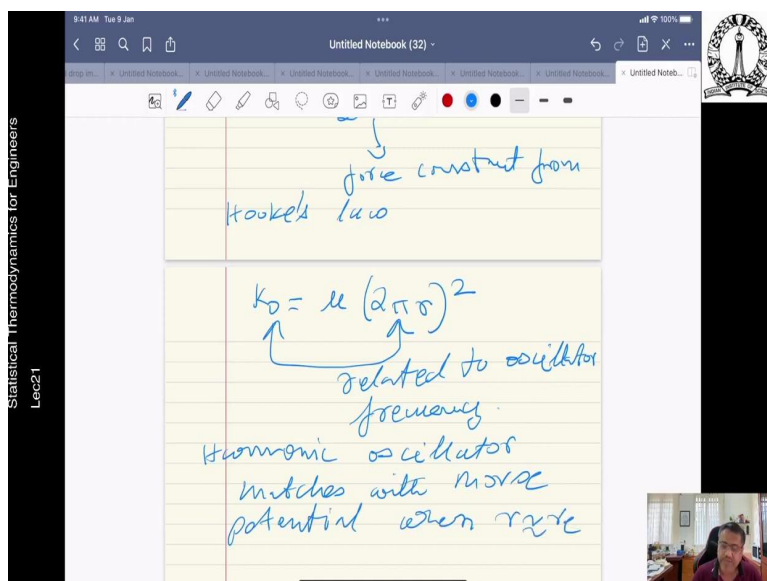 9:41 AM Tue 9 Jan
100%
Untitled Notebook (32)
d drop im... × Untitled Notebook... × Untitled Notebook... × Untitled Notebook... × Untitled Notebook... × Untitled Notebook... × Untitled Notebook... × Untitled Noteb...
Statistical Thermodynamics for Engineers
Lec21
2
force constant from
Hooke's law
K₀ = μ (2πν)²
related to oscillator
frequency.
Harmonic oscillator
matches with morse
potential when r ≈ re